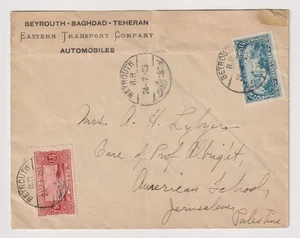 BEYROUTH - BAGHDAD - TEHERAN
EASTERN TRANSPORT COMPANY
AUTOMOBILES
BEYROUTH
R.P.
BEYROUTH
R.P.
Mrs. A. H. Lybyer
Care of Prof. Albright,
American School,
Jerusalem,
Palestine
BEYROUTH
R.P.